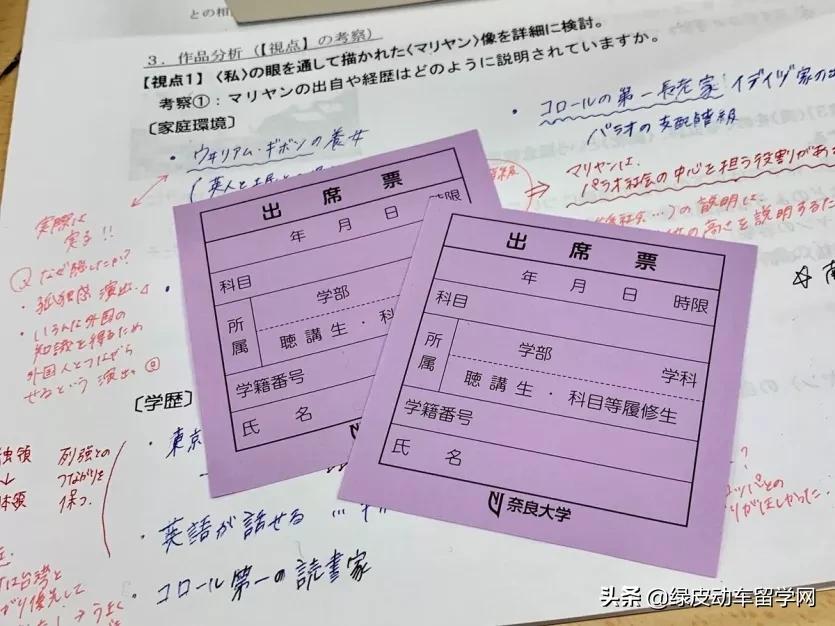 との相
3．作品分析（【視点】の考察）
【視点1】〈私〉の眼を通して描かれた〈マリヤン〉像を詳細に検討。
考察①：マリヤンの出自や経歴はどのように説明されていますか。
〔家庭環境〕
・ウヰリアム・ギボンの養女
・コロールの第一長老家：イデイヅ家の出
パラオの支配階級
マリヤンは、
パラオ社会の中心を担う役割がある
の説明は、
の高さを説明するた
実際は
異る!!
Q なぜ隠したか？
・孤独感 演出
・いろんな外国の
知識を得るため
外国人とつながら
せるという演出
〔学歴〕
・東京
・英語が話せる
・コロール第一の読書家
独領
↓
本領
列強との
つながりを
保つ
出席票
年 月 日 時限
科目
所属
学部
聴講生・科
学籍番号
氏名
出席票
年 月 日 時限
科目
所属
学部
学科
聴講生・科目等履修生
学籍番号
氏名
奈良大学
头条 @绿皮动车留学网